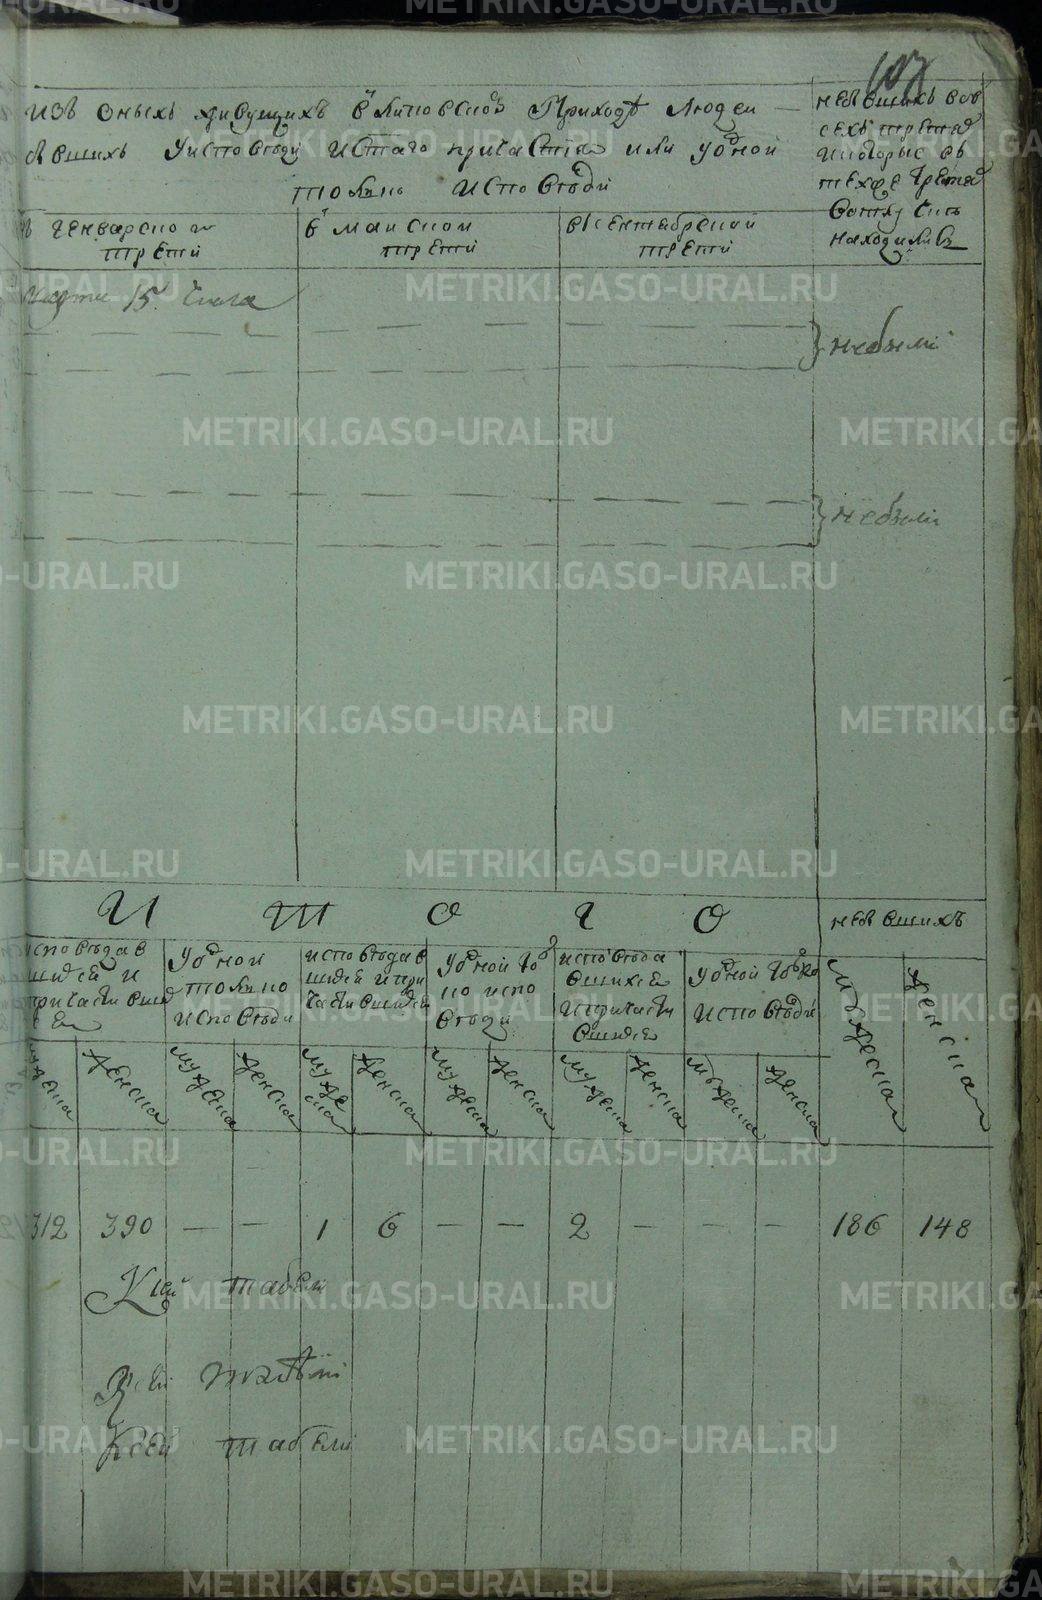 107
изъ оныхъ живущихъ в приходѣ людеи
бывшихъ у исповѣди и стаго причастїя или у одной
толко исповѣди
небывшихъ во в
сехъ третя
и которые въ
техже третя
въ генварской
трети
в маиской
трети
в сентебрской
трети
марта 15 числа
небыли
небыли
ИТОГО
небывшихъ
исповѣдав
шихся и
причастивши
ся
у одной
толко
исповѣди
исповѣдав
шихся и при
частившихся
у одной то
ко испо
вѣди
исповѣда
вшихся
и причасти
вшихся
у одной толко
исповѣди
мужеска
женска
мужеска
женска
мужеска
женска
мужеска
женска
мужеска
женска
мужеска
женска
мужеска
женска
312 390 — — 1 6 — — 2 — — — 186 148
К сей табели
К сей табели
METRIKI.GASO-URAL.RU